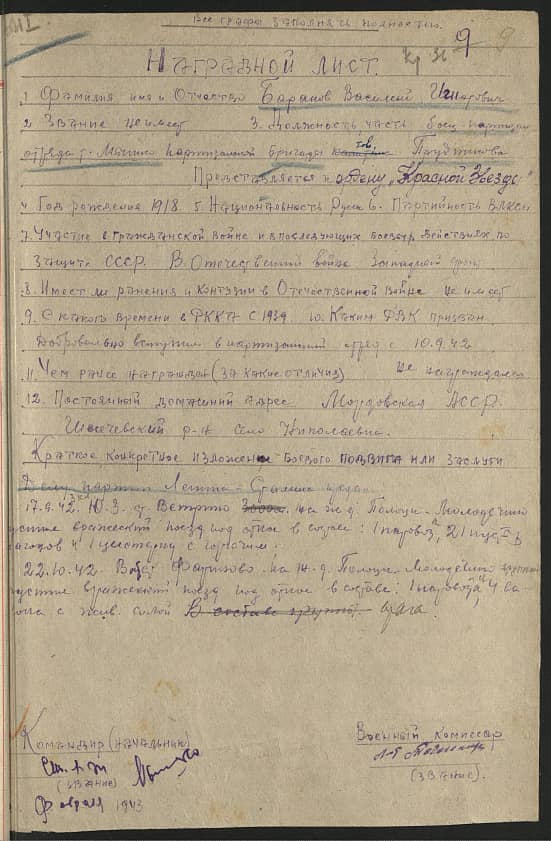 Все графы заполнять полностью.
9 9
Наградной лист.
1 Фамилия имя и Отчество Баранов Василий
2 Звание не имеет 3. Должность, часть боец партизан
отряда т. партизанской бригады тов.
Представляется к ордену „Красной Звезды"
4 Год рождения 1918. 5. Национальность Русск 6. Партийность ВЛКСМ
7. Участие в гражданской войне и в последующих боевых действиях по
защите СССР. В Отечественной войне Западный фронт
8. Имеет ли ранения и контузии в Отечественной войне не имеет
9. С какого времени в РККА с 1939 10. Каким РВК призван
Добровольно вступил в партизанский отряд с 10.9.42
11. Чем ранее награжден (за какие отличия) не награждался
12. Постоянный домашний адрес Мордовская АССР.
р-н село
Краткое конкретное изложение боевого подвига или заслуги
Делу партии Ленина-Сталина
17.9.42. Ю.З. д. Ветрино на ж.д. Полоцк-Молодечно
пустил вражеский поезд под откос в составе: 1 паровоз, 21
вагонов и 1 цистерну с горючим.
22.10.42 на ж-д. Полоцк-Молодечно
пустил вражеский поезд под откос в составе: 1 паровоз, 4 ва-
гона с жив. силой В составе группы врага.
Командир (начальник) Военный комиссар
(звание) (звание).
Февраля 1943